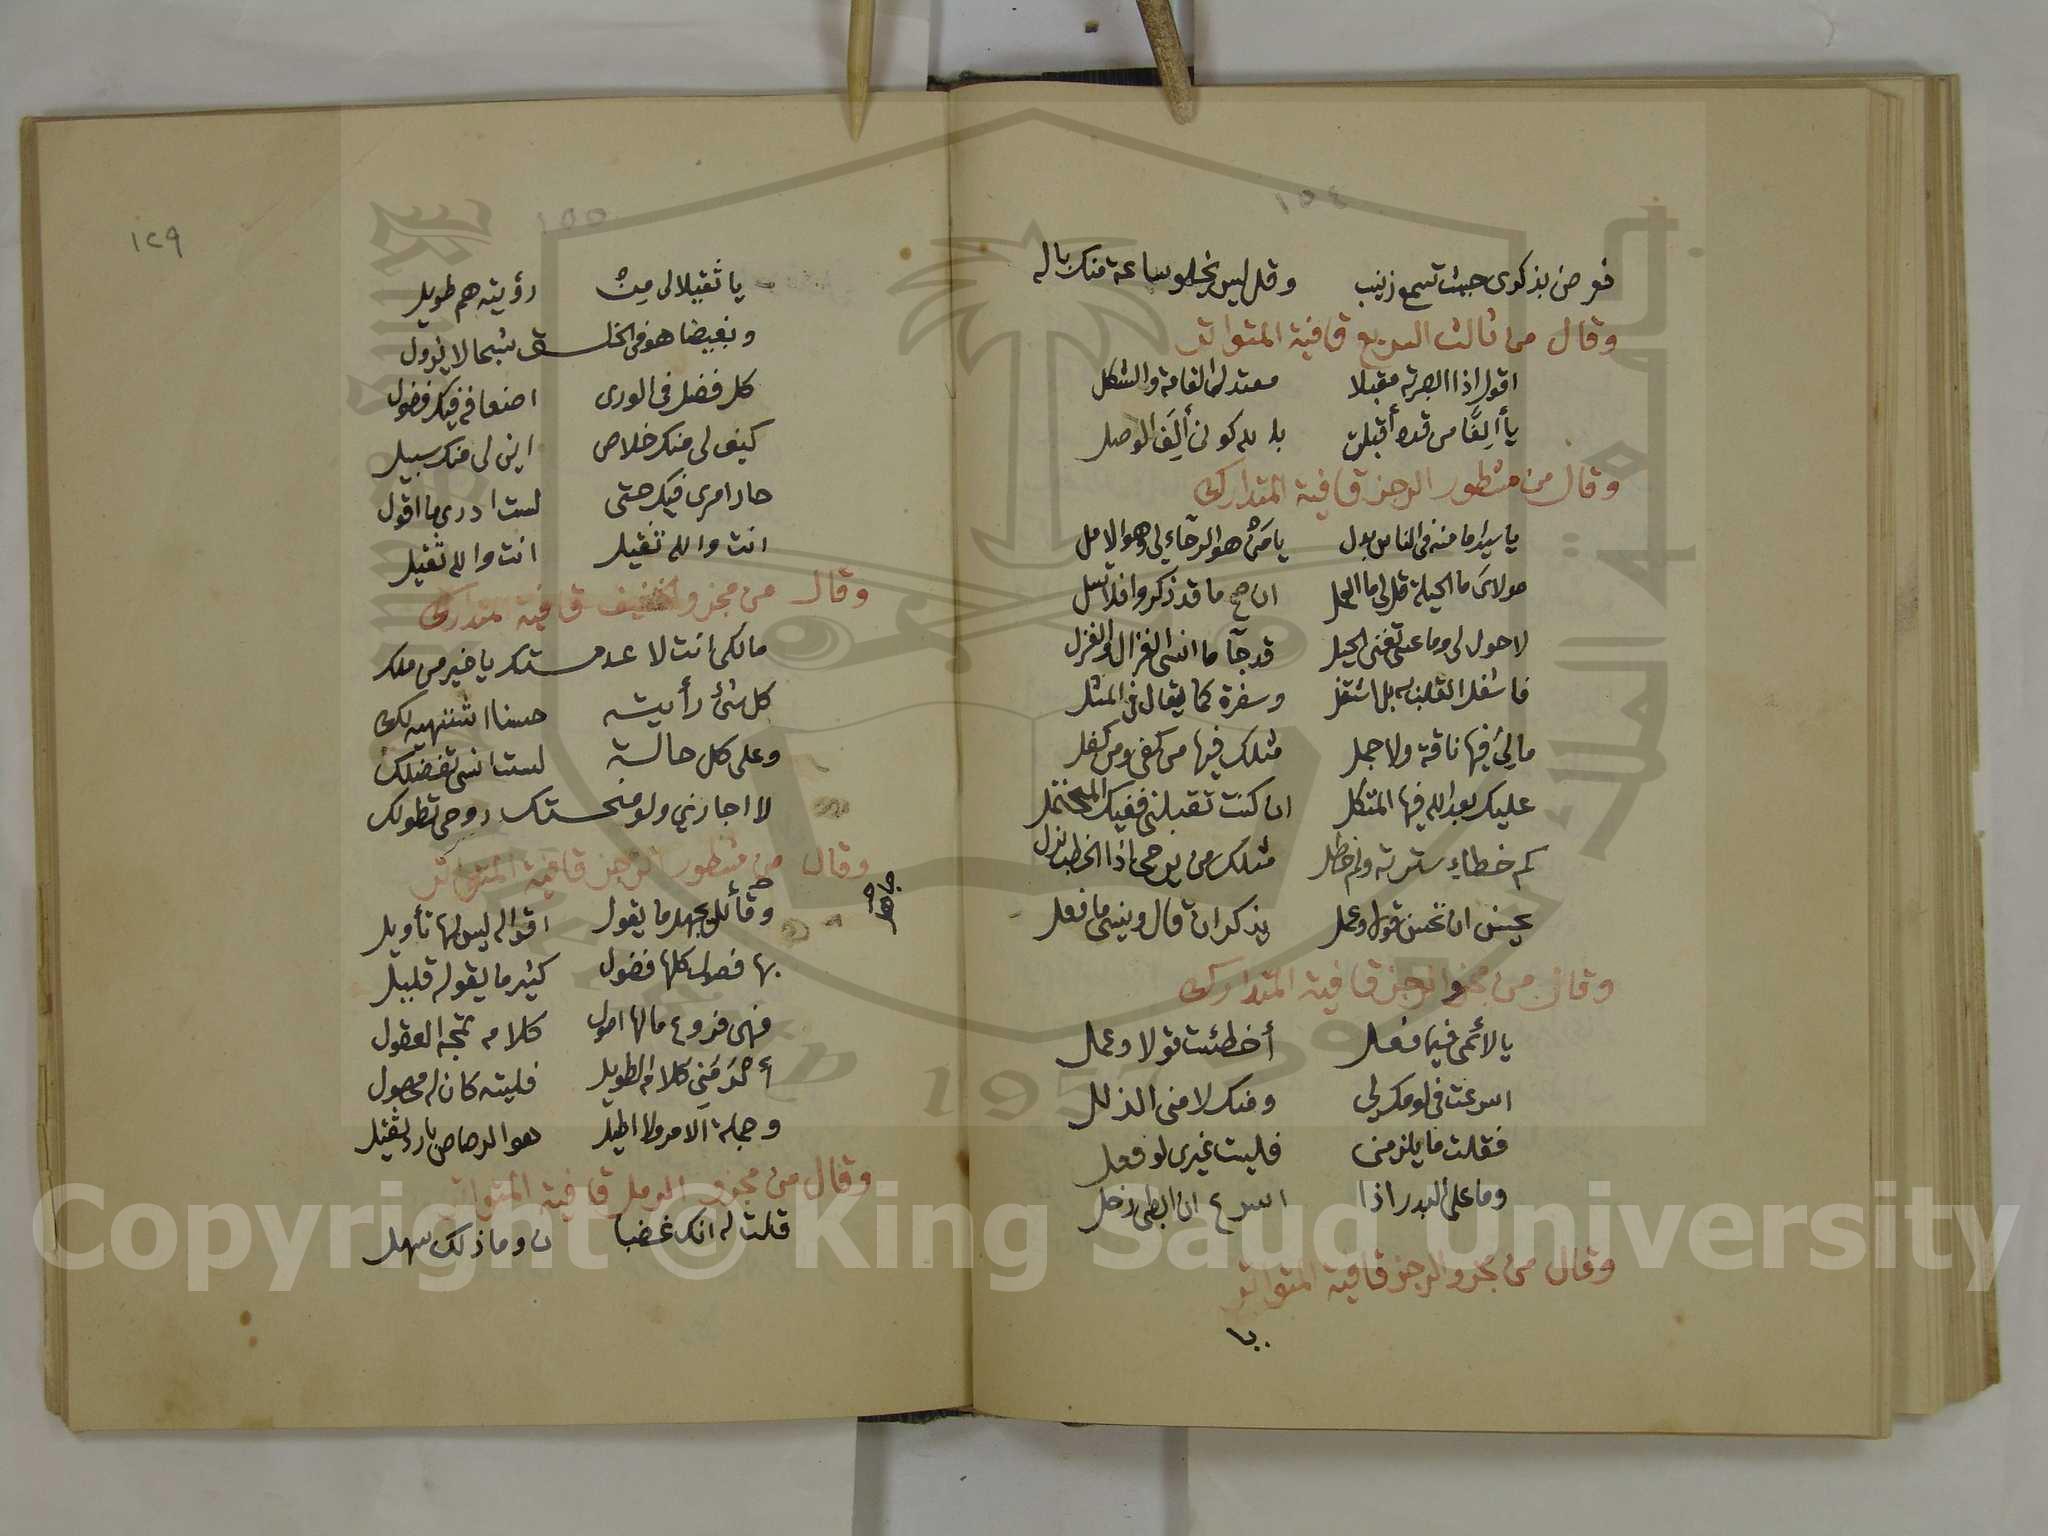 ١٥٤
فعرض بذكرى حيث تسمع زينب وقل ليس يخلو ساعة منك باله
وقال من ثالث السريع قافية المتواتر
اقول اذا ابصرته مقبلا معتدل القامة والشكل
يا ألفا من قده أقبلت بالله كونى ألف الوصل
وقال من مشطور الرجز قافية المتدارك
يا سيدا ما منه فى الناس بدل يا من هو الرجاء لى وهو الامل
مولاى ما الحيلة قل لى ما العمل ان صح ما قد ذكروا فلا تسل
لا حول لى وما عسى تغنى الحيل قد جآ ما انسى الغزال والغزل
فاشغل القلب به بل اشتغل وسفرة كما يقال فى المثل
ما لى فيها ناقة ولا جمل مثلك فيها من كفى ومن كفل
عليك بعد الله فيها المتكل ان كنت تقبلنى ففيك المحتمل
كم خطاء سترته وكم خطل مثلك من يرجى اذا الخطب نزل
يحسن ان تحسن قول وعمل يذكر ان قال وينسى ما فعل
وقال من مجزو الرجز قافية المتدارك
يا لائمى فيما فعل أخطئت قولا وعمل
اسرعت فى لومك لى ومنك لا منى الذلل
فقلت ما يلزمنى فليت غيرى لو فعل
وما على البدر اذا اسرع ان ابطى زحل
وقال من مجزو الرجز قافية المتواتر
يا
١٢٩
١٥٥
يا ثقيلا لى من رؤيته هم طويل
وبغيضا هو فى الخلق شجا لا يزول
كل فضل فى الورى اضعافه فيك فضول
كيف لى منك خلاص اين لى منك سبيل
حار امرى فيك حتى لست ادرى ما اقول
انت والله ثقيل انت والله ثقيل
وقال من مجزو الخفيف قافية المتدارك
مالكى انت لا عدمتك يا خير من ملك
كل شئ رأيته حسنا اشتهيه لك
وعلى كل حالة لست انسى تفضلك
لا اجازى ولو منحتك روحى تطولك
وقال من مشطور الرجز قافية المتواتر
وقائل يجهل ما يقول اقواله ليس لها تأويل
بها فصول كلها فضول كثير ما يقوله قليل
فهى فروع ما لها اصول كلامه تمجه العقول
أبرمنى كلامه الطويل فليته كان له محصول
وجملة الامر ولا اطيل هو الرصاص بارد ثقيل
وقال من مجزو الرمل قافية المتواتر
قلت له انك غضبا ن وما ذلك سهل
Copyright © King Saud University
1957